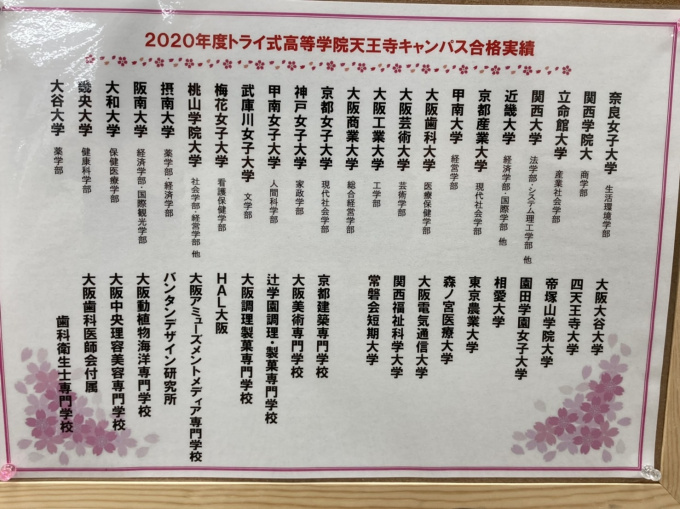 2020年度トライ式高等学院天王寺キャンパス合格実績
奈良女子大学 生活環境学部
関西学院大 商学部
立命館大学 産業社会学部
関西大学 法学部・システム理工学部 他
近畿大学 経済学部・国際学部 他
京都産業大学 現代社会学部
甲南大学 経営学部
大阪歯科大学 医療保健学部
大阪芸術大学 芸術学部
大阪工業大学 工学部
大阪商業大学 総合経営学部
京都女子大学 現代社会学部
神戸女子大学 家政学部
甲南女子大学 人間科学部
武庫川女子大学 文学部
梅花女子大学 看護保健学部
桃山学院大学 社会学部・経営学部 他
摂南大学 薬学部・経済学部
阪南大学 経済学部・国際観光学部
大和大学 保健医療学部
畿央大学 健康科学部
大谷大学 薬学部
大阪大谷大学
四天王寺大学
帝塚山学院大学
園田学園女子大学
相愛大学
東京農業大学
森ノ宮医療大学
大阪電気通信大学
関西福祉科学大学
常磐会短期大学
京都建築専門学校
大阪美術専門学校
辻学園調理・製菓専門学校
大阪調理製菓専門学校
HAL大阪
大阪アミューズメントメディア専門学校
バンタンデザイン研究所
大阪動植物海洋専門学校
大阪中央理容美容専門学校
大阪歯科医師会付属
歯科衛生士専門学校